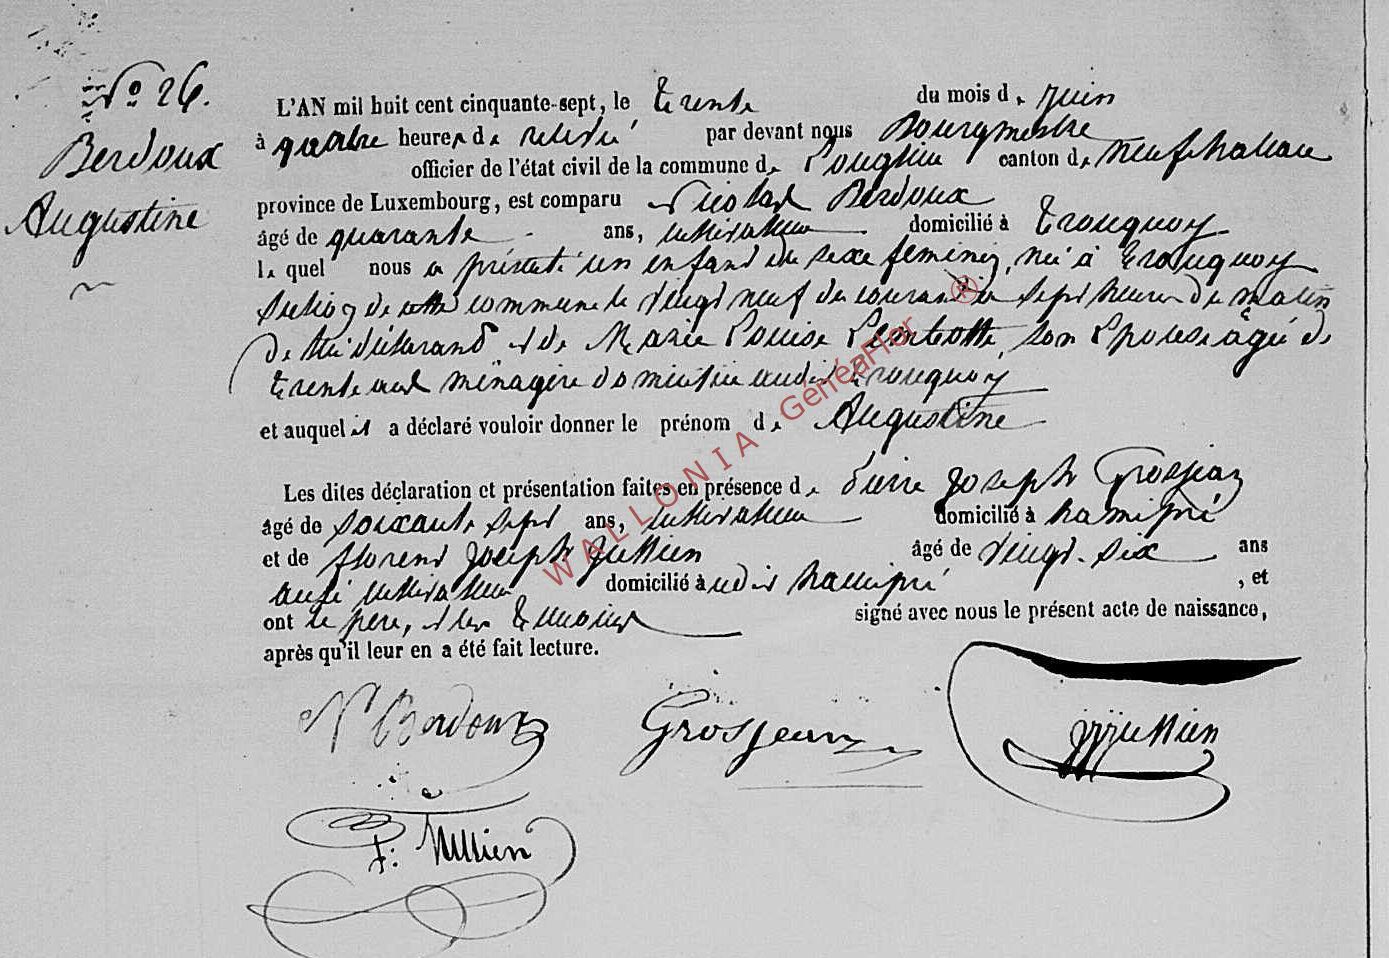 No 26.
Berdoux
Augustine
L'AN mil huit cent cinquante-sept, le trente du mois de juin
à quatre heures de relevé par devant nous Bourgmestre
officier de l'état civil de la commune de Longlier canton de neufchateau
province de Luxembourg, est comparu Nicolas Berdoux
âgé de quarante ans, cultivateur domicilié à tronquoy
le quel nous a présenté un enfant du sexe féminin, né à tronquoy
section de cette commune le vingt neuf du courant à sept heures du matin
de lui déclarant et de Marie Louise son épouse agé de
trente ménagère domicilié audit tronquoy
et auquel il a déclaré vouloir donner le prénom de Augustine
Les dites déclaration et présentation faites en présence de Pierre Joseph Grosjean
âgé de soixante sept ans, cultivateur domicilié à hamipré
et de florent Joseph Jullien âgé de vingt-six ans
aussi cultivateur domicilié à udit hamipré , et
ont le père, et les témoins signé avec nous le présent acte de naissance,
après qu'il leur en a été fait lecture.
N Berdoux
Grosjean
Jullien
f: Jullien
WALLONIA GénéaFfor ®